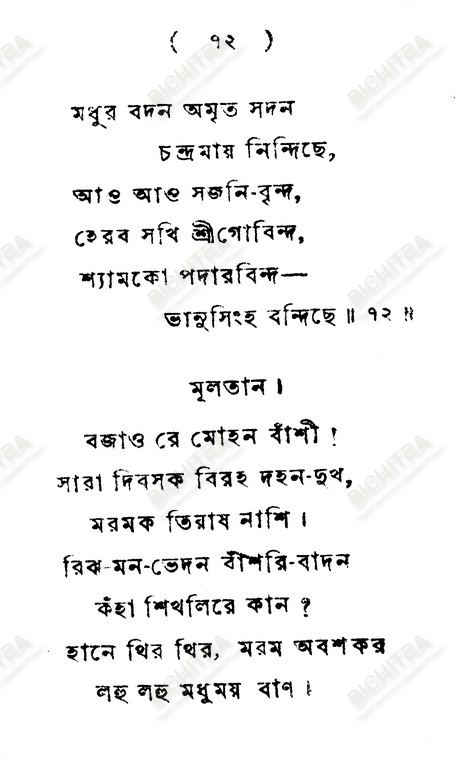 ( ১২ )
মধুর বদন অমৃত সদন
চন্দ্রমায় নিন্দিছে,
আও আও সজনি-বৃন্দ,
হেরব সখি শ্রীগোবিন্দ,
শ্যামকো পদারবিন্দ—
ভানুসিংহ বন্দিছে॥ ১২ ॥
মূলতান।
বজাও রে মোহন বাঁশী!
সারা দিবসক বিরহ দহন-দুখ,
মরমক তিয়াষ নাশি।
রিঝ-মন-ভেদন বাঁশরি-বাদন
কঁহা শিখলিরে কান?
হানে থির থির, মরম অবশকর
লহু লহু মধুময় বাণ।
BICHITRA
BICHITRA
BICHITRA
BICHITRA
BICHITRA
BICHITRA
BICHITRA
BICHITRA
BICHITRA
BICHITRA
BICHITRA
BICHITRA